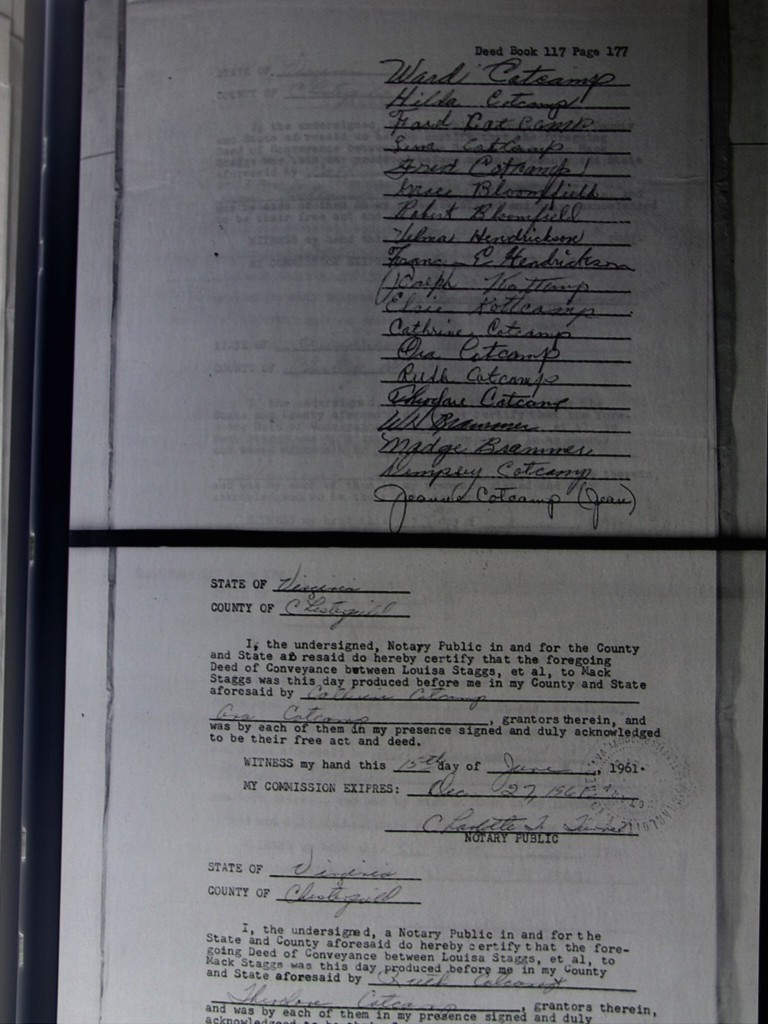 Deed Book 117 Page 177
Ward Cotcamp
Hilda Cotcamp
Ford Cotcamp
Lena Cotcamp
Fred Cotcamp
Grace Bloomfield
Robert Bloomfield
Velma Hendrickson
E. Hendrickson
Ralph Kottcamp
Elsie Kottcamp
Cathrine Cotcamp
Ora Cotcamp
Ruth Cotcamp
Theodore Cotcamp
WH Brammer
Madge Brammer
Dempsey Cotcamp
Cotcamp (Jean)
STATE OF Virginia
COUNTY OF Chesterfield
I, the undersigned, Notary Public in and for the County
and State resaid do hereby certify that the foregoing
Deed of Conveyance between Louisa Staggs, et al, to Mack
Staggs was this day produced before me in my County and State
aforesaid by Cathrine Cotcamp
Ora Cotcamp, grantors therein, and
was by each of them in my presence signed and duly acknowledged
to be their free act and deed.
WITNESS my hand this 15th day of June, 1961.
MY COMMISSION EXIPRES: Dec. 27,
Charlotte
NOTARY PUBLIC
STATE OF Virginia
COUNTY OF Chesterfield
I, the undersigned, a Notary Public in and for the
State and County aforesaid do hereby certify that the fore-
going Deed of Conveyance between Louisa Staggs, et al, to
Mack Staggs was this day produced before me in my County
and State aforesaid by Ruth Cotcamp
Theodore Cotcamp, grantors therein,
and was by each of them in my presence signed and duly
acknowledged to be their free act